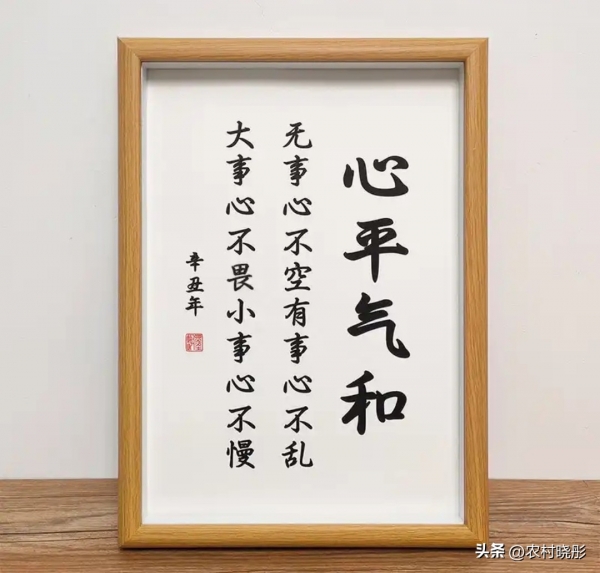 心平气和
无事心不空有事心不乱
大事心不畏小事心不慢
辛丑年
头条 @农村晓彤